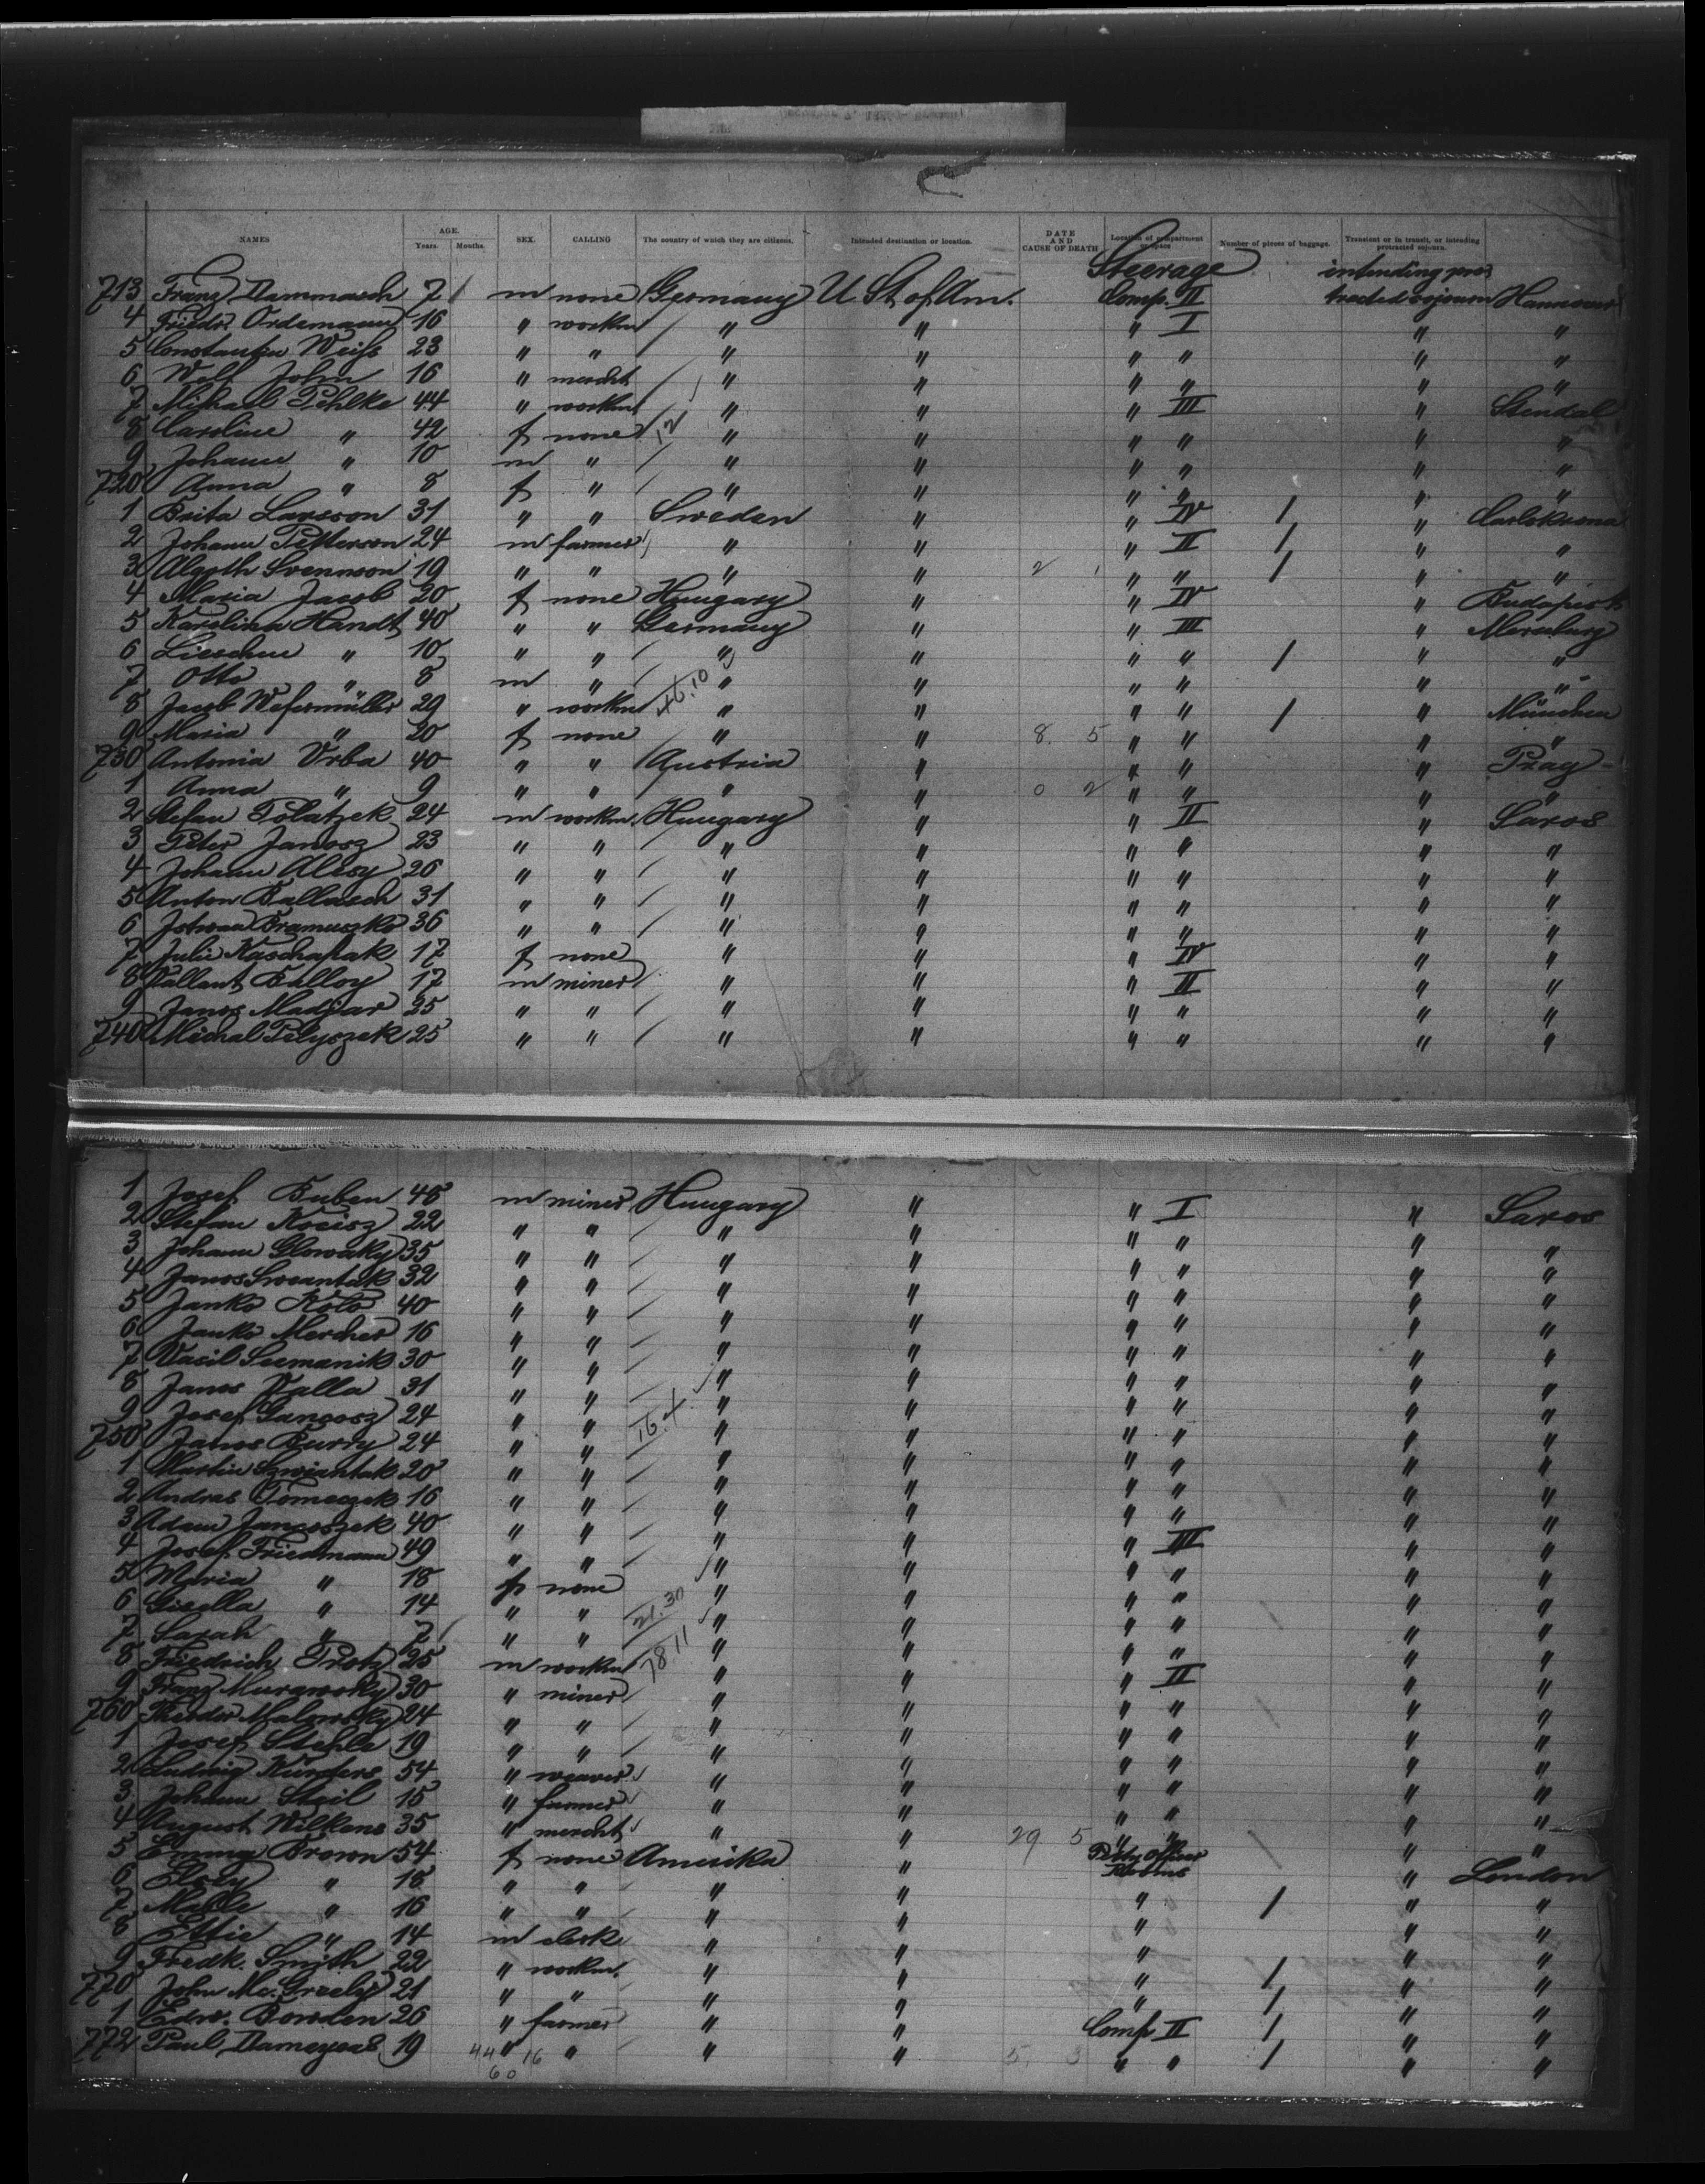 NAMES AGE. Years. Months. SEX. CALLING The country of which they are citizens. Intended destination or location. DATE AND CAUSE OF DEATH Location of compartment or space Number of pieces of baggage. Transient or in transit, or intending protracted sojourn.
Steerage intending pro-
713 Franz Dammasch 7 m none Germany U. St. of Am. Comp. II tracted sojourn Hannover
4 Friedr. Ordemann 16 " workm " " " I " "
5 Constantin Weiss 23 " " " " " " " "
6 John 16 " mercht " " " " " "
7 Michael Pehlke 44 " workm " " " III " Stendal
8 Caroline " 42 f none 12 " " " " " "
9 Johann " 10 m " " " " " " "
720 Anna " 8 f " " " " " " "
1 Brita Larsson 31 " " Sweden " " IV / " Carlskrona
2 Johann Petterson 24 m farmer " " " II / " "
3 Algoth Svennson 19 " " " " 2 " " / " "
4 Maria Jacob 20 f none Hungary " " IV " Budapest
5 Karolina Handt 40 " " Germany " " III " Merseburg
6 Lieschen " 10 " " " " " " / " "
7 Otto " 8 m " 46.10 " " " " " "
8 Jacob 29 " workm " " " " / " München
9 Maria " 20 f none " " 8. 5 " " " "
730 Antonia Vrba 40 " " Austria " " " " Prag
1 Anna " 9 " " " " 0 2 " " " "
2 Stefan Polatzek 24 m workm. Hungary " " II " Saros
3 Peter Janosz 23 " " " " " " " "
4 Johann Alesy 26 " " " " " " " "
5 Anton Ballasch 31 " " " " " " " "
6 Istvan Bramuszko 36 " " " " " " " "
7 Julie Kaschapak 17 f none " " " IV " "
8 Vallant Balloy 17 m miner " " " II " "
9 Janos Madjar 25 " " " " " " " "
740 Michal Pilyszek 25 " " " " " " " "
1 Josef Buben 48 m miner Hungary " " I " Saros
2 Stefan Kocisz 22 " " " " " " " "
3 Johann Glowaky 35 " " " " " " " "
4 Janos Swantak 32 " " " " " " " "
5 Janko Kolo 40 " " " " " " " "
6 Janko Mercher 16 " " " " " " " "
7 Vasil Seemanik 30 " " " " " " " "
8 Janos Valla 31 " " " " " " " "
9 Josef Gangosz 24 " " 16.4 " " " " " "
750 Janos Burry 24 " " " " " " " "
1 Martin Szwiantak 20 " " " " " " " "
2 Andras Tomeczek 16 " " " " " " " "
3 Adam Jancoszek 40 " " " " " " " "
4 Josef Friedmann 49 " " " " " III " "
5 Maria " 18 f none " " " " " "
6 Gisella " 14 " " 21.30 " " " " " "
7 Sarah " 7 " " " " " " " "
8 Friedrich Protz 25 m workm 78.11 " " " " " "
9 Franz Murawsky 30 " miner " " " II " "
760 Theodor Malowsky 24 " " " " " " " "
1 Josef Stehle 19 " " " " " " " "
2 Ludwig Kunders 54 " weaver " " " " " "
3 Johann Steil 15 " farmer " " " " " "
4 August Wilkens 35 " mercht " " 29 5 " " " "
5 Emma Brown 54 f none Amerika " Petty Officer Rooms " London
6 " 18 " " " " " " "
7 " 16 " " " " " / " "
8 Ettie " 14 m clerk " " " " "
9 Fredk. Smith 22 " workm. " " " / " "
770 John Mc. Greely 21 " " " " " / " "
1 Edw. Bowden 26 " farmer " " Comp II / " "
772 Paul Dameyer 19 " " " " 5. 3 " " / " "
44 16
60